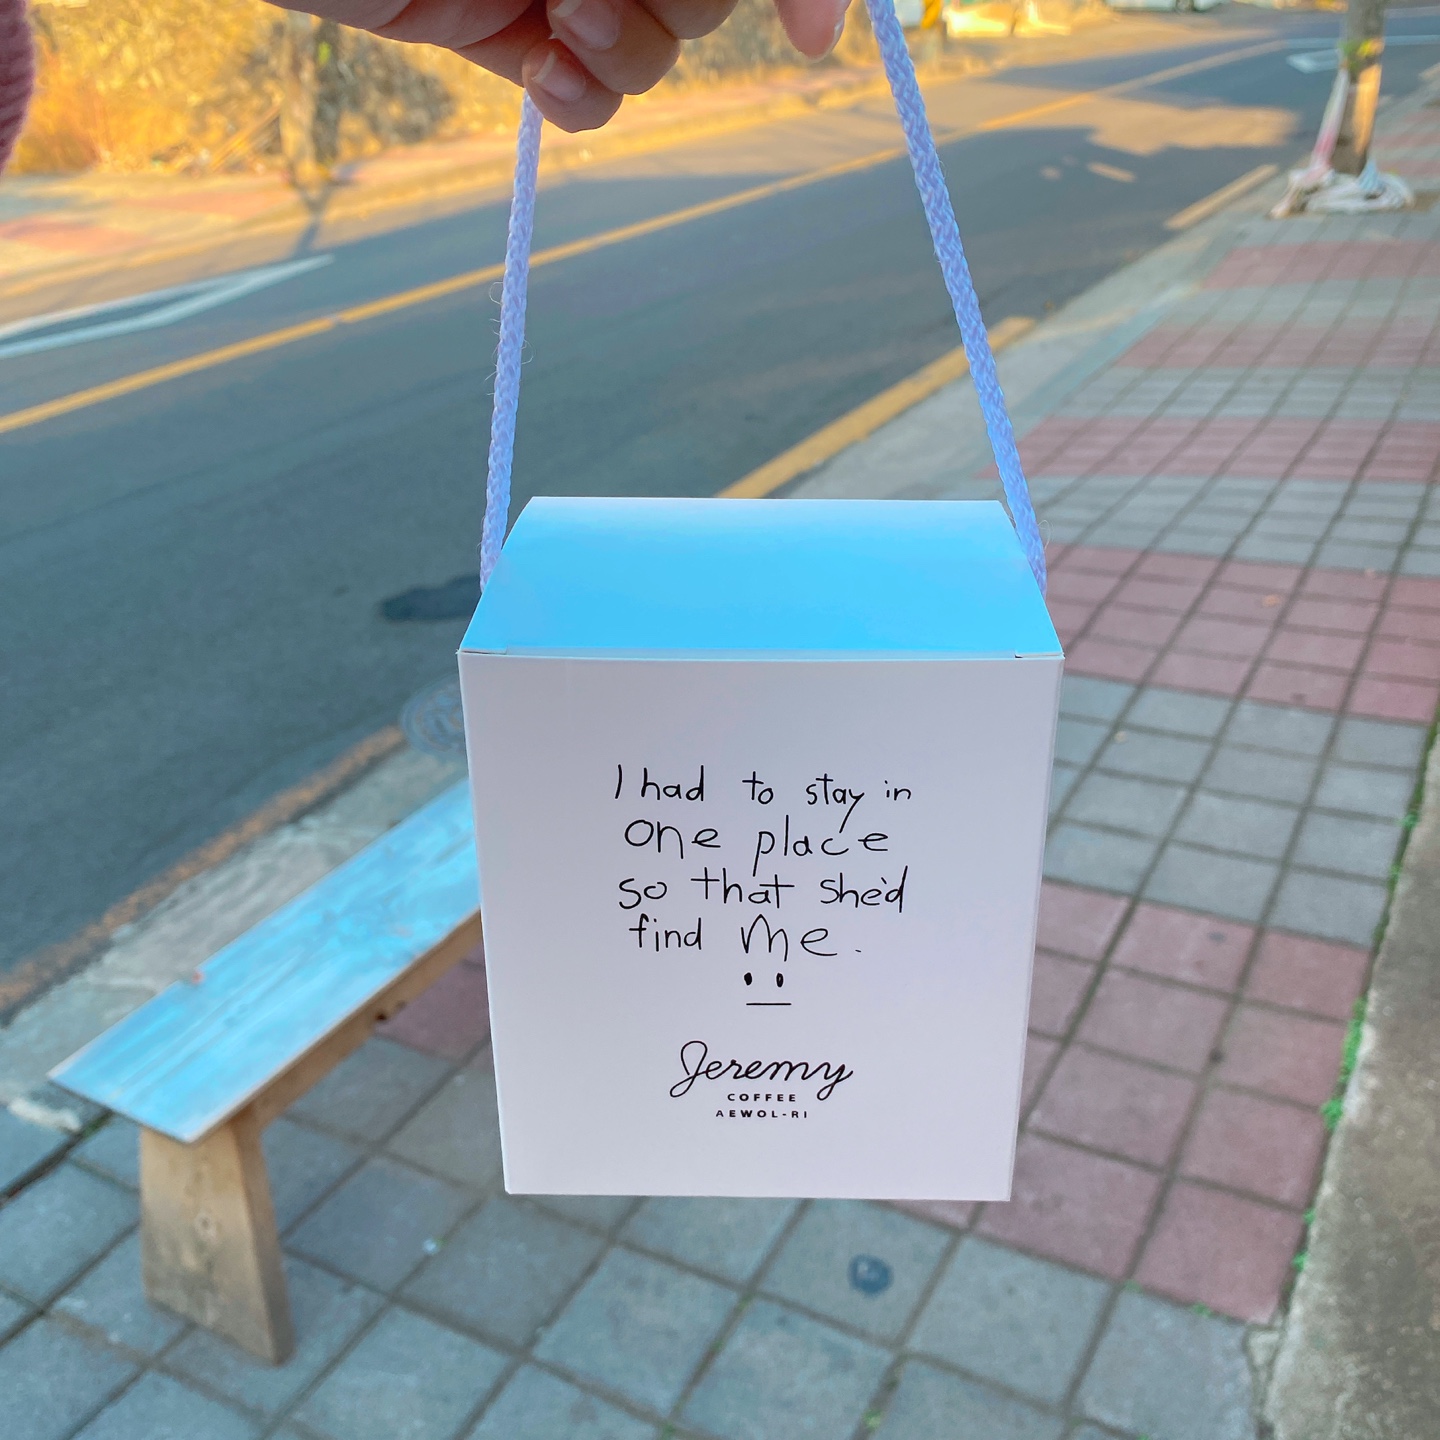 I had to stay in
one place
so that she'd
find me.
Jeremy
COFFEE
AEWOL-RI